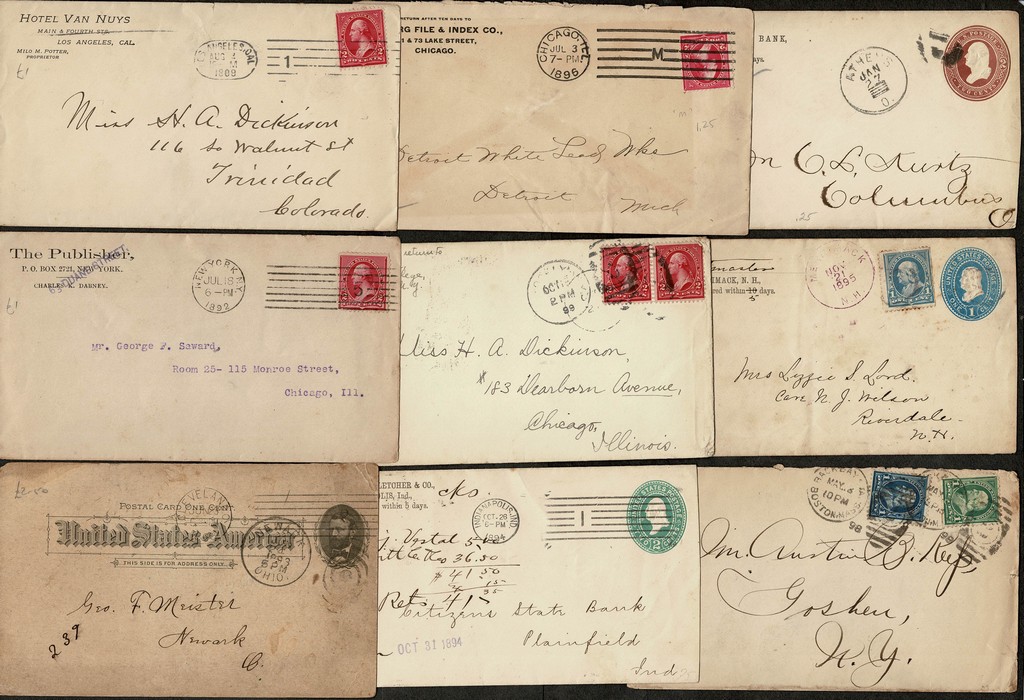 HOTEL VAN NUYS
MAIN & FOURTH STS.
LOS ANGELES, CAL.
MILO M. POTTER,
PROPRIETOR
£1
LOS ANGELES, CAL.
1
Miss H. A. Dickinson
116 So Walnut St
Trinidad
Colorado.
RETURN AFTER TEN DAYS TO
RG FILE & INDEX CO.,
& 73 LAKE STREET,
CHICAGO.
CHICAGO, ILL.
JUL 3
7-PM
1896
M
1.25
Detroit White Lead Wks
Detroit
Mich
BANK,
ATHENS
JAN
27
O.
U.S. POSTAGE
TWO CENTS
C. L. Kurtz
Columbus
O
.25
The Publisher,
P. O. BOX 2721, NEW YORK.
CHARLES K. DARNEY.
£1
NEW YORK, N.Y.
JUL 18
6-PM
1892
Mr. George F. Seward,
Room 25- 115 Monroe Street,
Chicago, Ill.
return to
2 PM
98
Miss H. A. Dickinson,
#183 Dearborn Avenue,
Chicago,
Illinois.
MACK, N. H.,
red within 10 days.
5
NOV
21
1895
N.H.
UNITED STATES POSTAGE
1
Mrs Lizzie S. Lord.
Care N. J. Wilson
Riverdale
N.H.
£2.50
POSTAL CARD ONE CENT.
United States of America
THIS SIDE IS FOR ADDRESS ONLY.
CLEVELAND
NEWARK
OHIO
Geo. F. Meister
Newark
O.
239
LETCHER & CO.,
OLIS, Ind.,
within 5 days.
cks.
INDIANAPOLIS, IND.
OCT-26
6-PM
1894
1
UNITED STATES POSTAGE
2
Postal 5
36.50
$41.50
15
35
Ret. 41
Citizens State Bank
Plainfield
Ind
OCT 31 1894
BACK BAY
MAY 3
10 PM
BOSTON, MASS.
98
Mr. Austin B. Key,
Goshen,
N. Y.